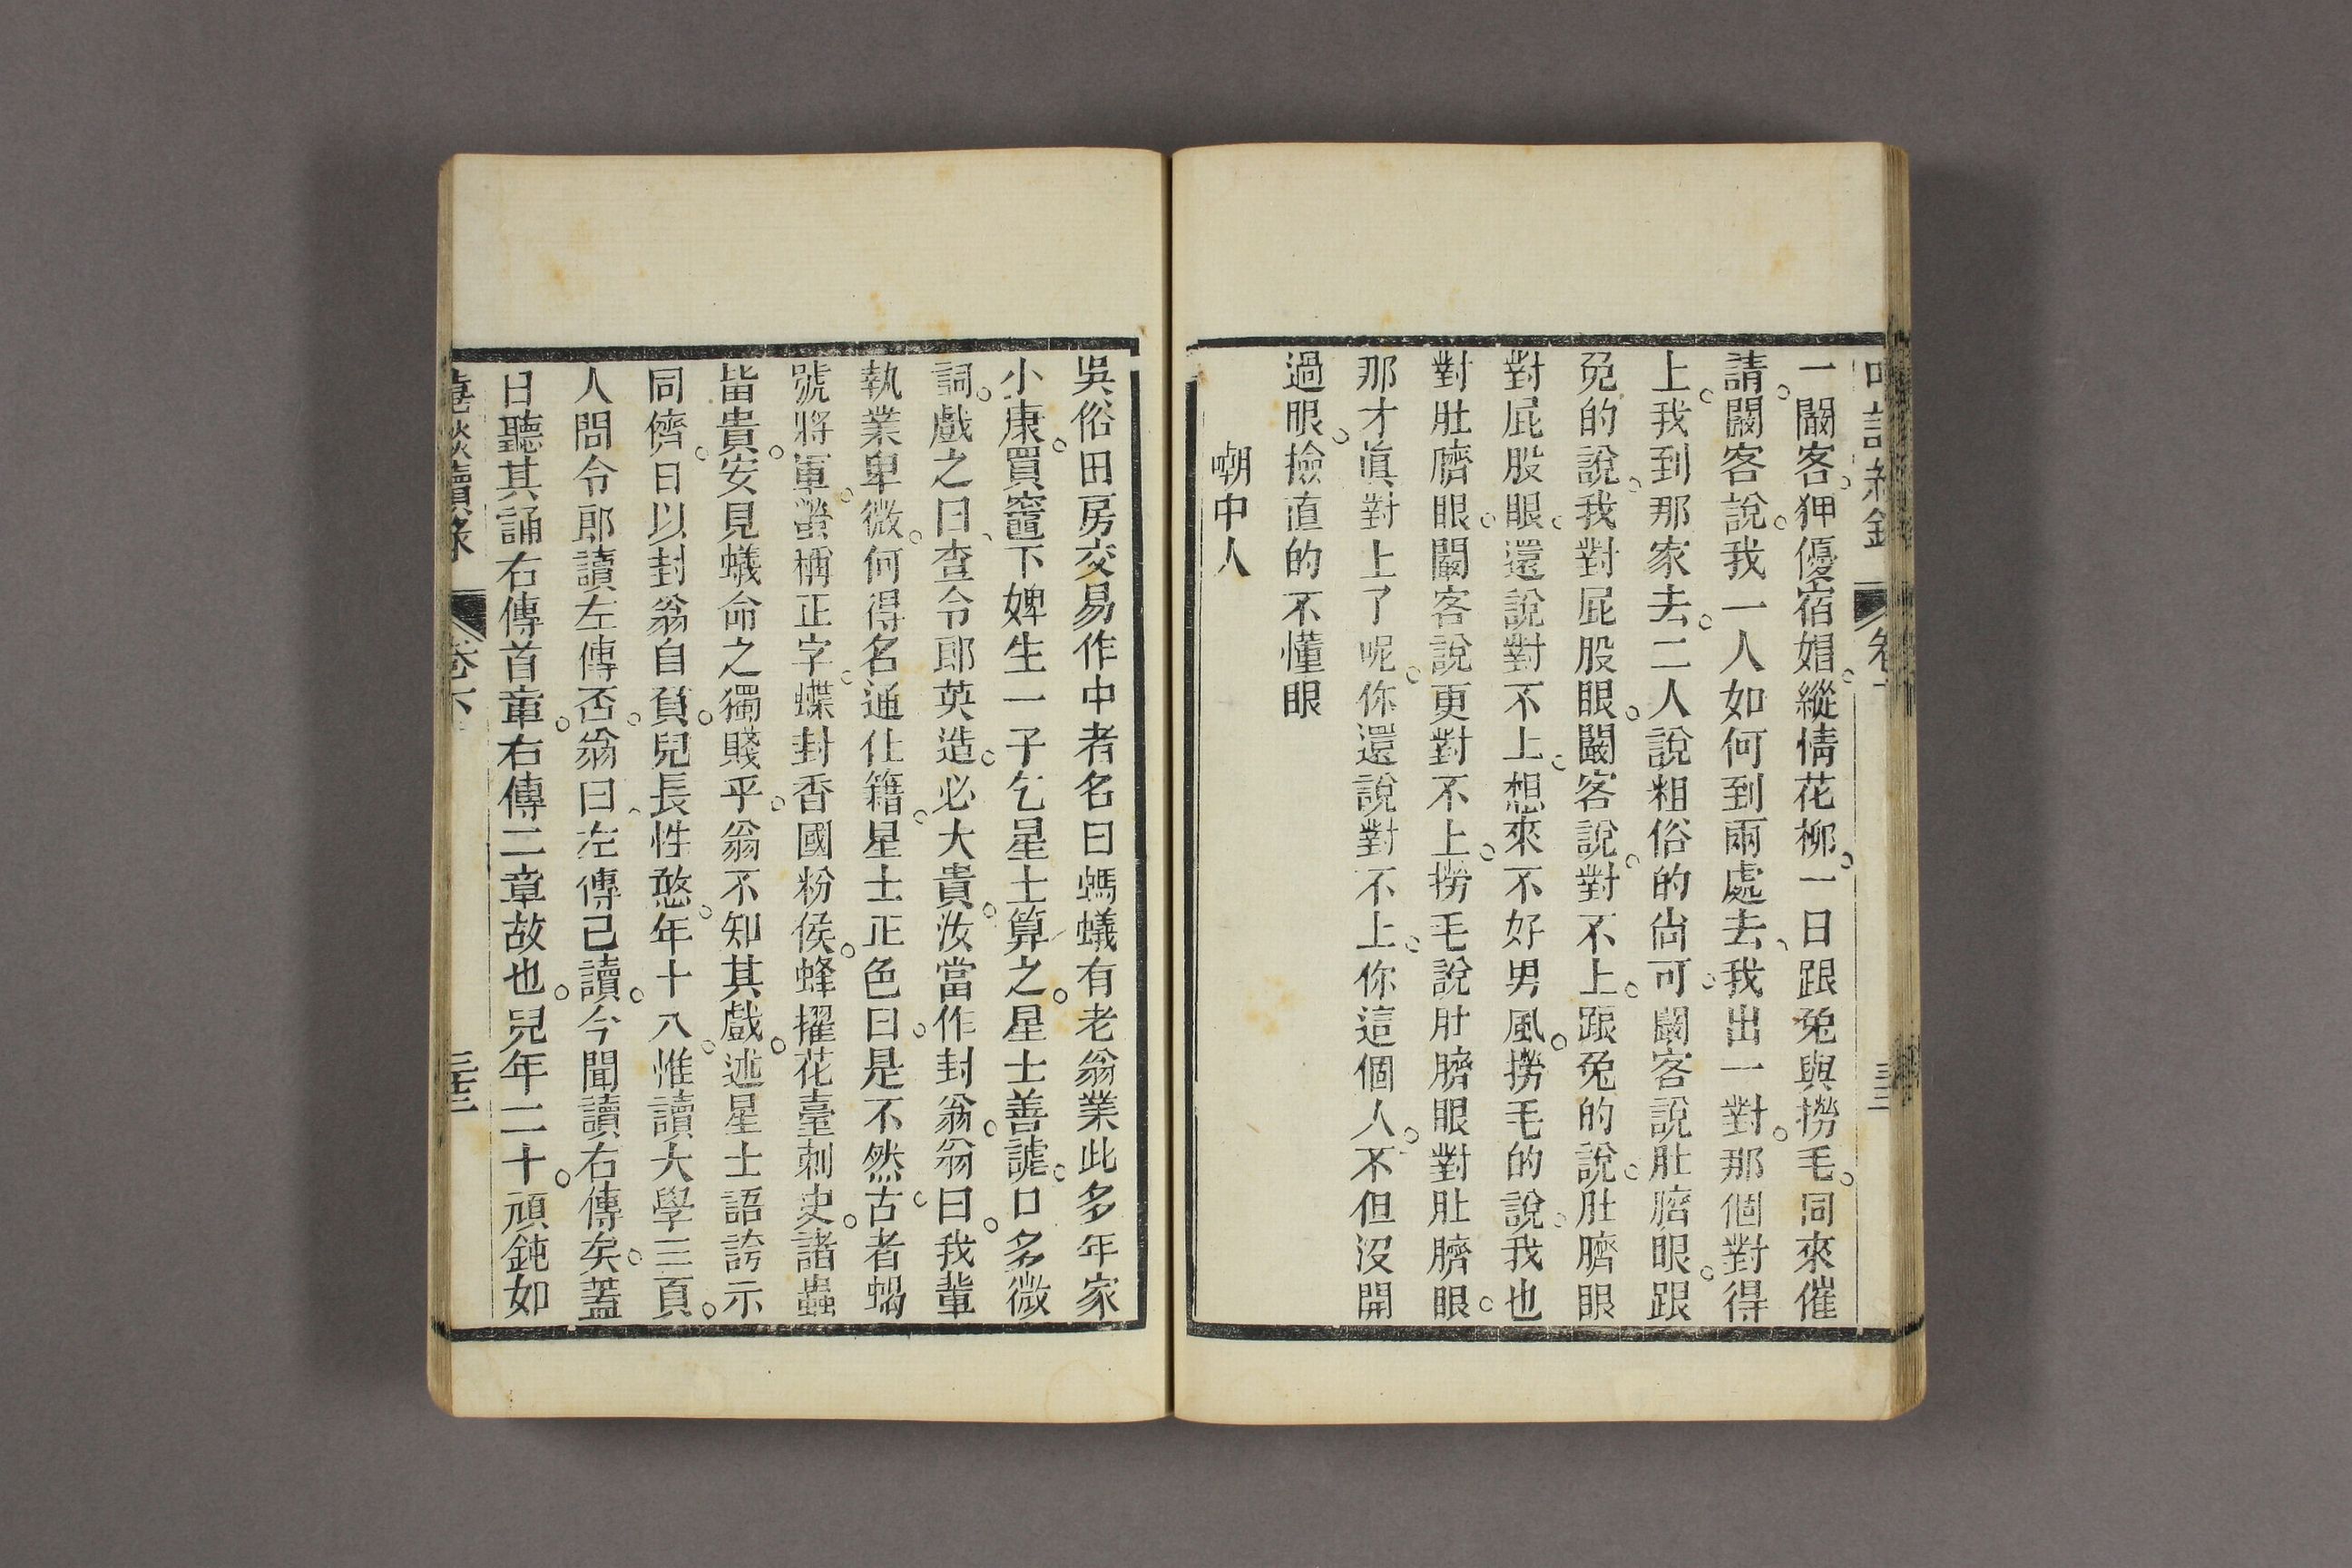 一闞客。狎優宿娼。縱情花柳。一日跟兔與撈毛。同來催
請。闞客說。我一人如何到兩處去、我出一對。那個對得
上。我到那家去。二人說粗俗的尙可。闞客說肚臍眼。跟
兔的說。我對屁股眼。闞客說。對不上。跟兔的說。肚臍眼
對屁股眼。還說對不上。想來不好男風。撈毛的說。我也
對肚臍眼。闞客說更對不上。撈毛說肚臍眼對肚臍眼。
那才眞對上了呢。你還說對不上。你這個人。不但沒開
過眼。撿直的不懂眼
嘲中人
吳俗田房交易作中者名曰螞蟻有老翁業此多年家
小康。買竈下婢生一子乞星士算之。星士善謔。口多微
詞。戲之曰、查令郎英造。必大貴。汝當作封翁。翁曰。我輩
執業卑微。何得名通仕籍。星士正色曰。是不然。古者蝎
號將軍。螢稱正字。蝶封香國粉侯。蜂擢花臺刺史。諸蟲
皆貴。安見蟻命之獨賤乎。翁不知其戲。述星士語誇示
同儕。日以封翁自負。兒長性憨。年十八。惟讀大學三頁。
人問令郎讀左傳否。翁曰、左傳已讀。今聞讀右傳矣。蓋
日聽其誦右傳首章。右傳二章故也。兒年二十。頑鈍如
卷下